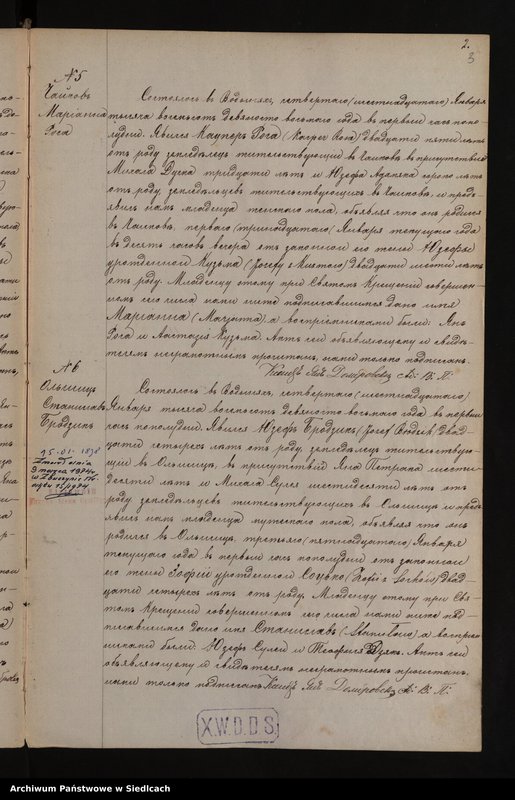 2.
3
№ 5
Чайковъ
Марiанна
Рога
Состоялось въ Водыняхъ, четвертаго (шестнадцатаго) Января
тысяча восемьсотъ девяносто восьмаго года въ первый часъ попо-
лудни. Явился Касперъ Рога (Kacper Roga) двадцати пяти лѣтъ
отъ роду земледѣлецъ жительствующій въ Чайковѣ въ присутствіи
Михаила Дука тридцати лѣтъ и Юзефа сорока лѣтъ
отъ роду, земледѣльцевъ жительствующихъ въ Чайковѣ, и предъ-
явилъ намъ младенца женскаго пола, объявляя что онъ родился
въ Чайковѣ перваго (тринадцатаго) Января текущаго года
въ десять часовъ вечера отъ законной его жены Юзефы
урожденной Кузьма двадцати шести лѣтъ
отъ роду. Младенцу этому при Святомъ Крещеніи совершон-
номъ сего числа нами ниже подписавшимся дано имя
Маріанна а воспріемниками были: Янъ
Рога и Анастазія Кузьма. Актъ сей объявляющему и свидѣ-
телямъ неграмотнымъ прочитанъ, нами только подписанъ.
Ксендзъ А. В. П.
№ 6
Ольшицъ
Станиславъ
Бродзикъ
25.01. 1898
Zmarł dnia
3 marca 1974r
w Zbuczynie
Состоялось въ Водыняхъ, четвертаго (шестнадцатаго)
Января тысяча восемьсотъ девяносто восьмаго года въ первый
часъ пополудни. Явился Юзефъ Бродзикъ (Józef Brodzik) двад-
цати четырехъ лѣтъ отъ роду, земледѣлецъ жительствую-
щій въ Ольшицѣ, въ присутствіи Яна Петрака шести-
десяти лѣтъ и Михаила шестидесяти лѣтъ отъ
роду земледѣльцевъ жительствующихъ въ Ольшицѣ и предъ-
явилъ намъ младенца мужескаго пола, объявляя что онъ
родился въ Ольшицѣ, третьяго (пятнадцатаго) Января
текущаго года въ первый часъ пополудни отъ законной
его жены Зофіи урожденной Соцько двад-
цати четырехъ лѣтъ отъ роду, Младенцу этому при Свя-
томъ Крещеніи совершонномъ сего числа нами ниже под-
писавшимся дано имя Станиславъ (Stanisław) а воспріем-
никами были: Юзефъ и Теофиля. Актъ сей
объявляющему и свидѣтелямъ неграмотнымъ прочитанъ,
нами только подписанъ Ксендзъ А. В. П.
X.W.D.D.S.
Archiwum Państwowe w Siedlcach